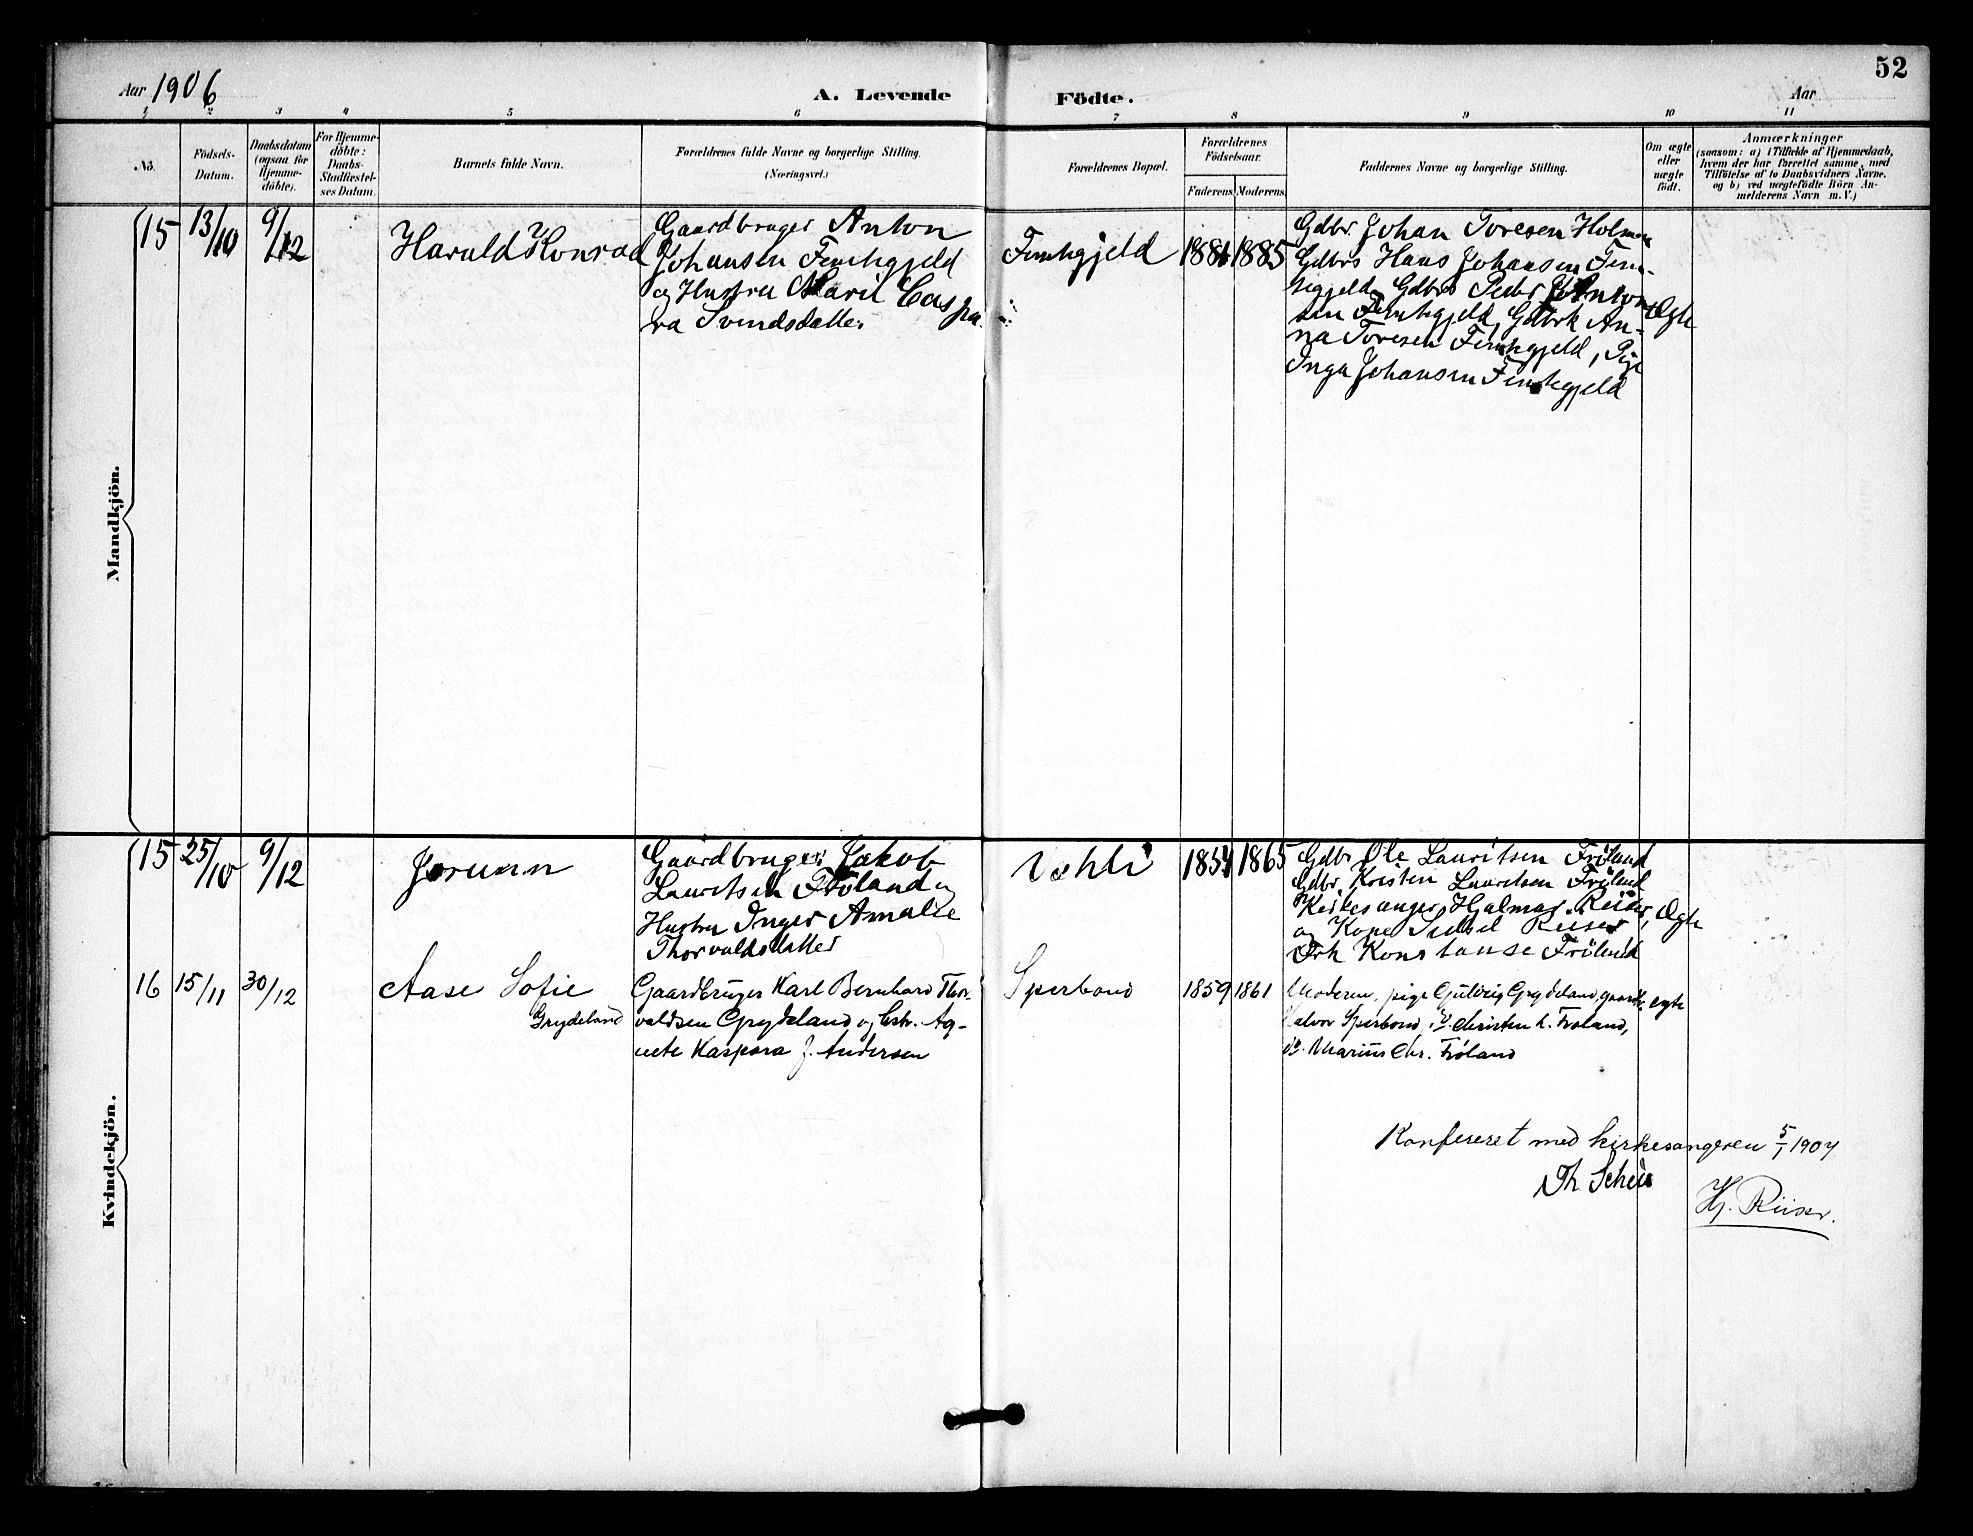 52
Aar 1906
A. Levende Födte.
Aar
1 2 3 4 5 6 7 8 9 10 11
No.
Födsels-
Datum.
Daabsdatum
(ogsaa for
Hjemme-
döbte).
For Hjemme-
döbte:
Daabs-
Stadfæstel-
ses Datum.
Barnets fulde Navn.
Forældrenes fulde Navne og borgerlige Stilling.
(Næringsvei.)
Forældrenes Bopæl.
Forældrenes
Födselsaar.
Faderens. Moderens.
Faddernes Navne og borgerlige Stilling.
Om ægte
eller
uægte
födt.
Anmærkninger
(saasom: a) i Tilfælde af Hjemmedaab,
hvem der har forrettet samme, med
Tilföielse af to Daabsvidners Navne,
og b) ved uægtefödte Börn An-
melderens Navn m. V.)
Mandkjön.
15 13/10 9/12
Harald Konrad
Gaardbruger Anton
Johansen Femhgjeld
og Hustru Marie Caspa
ra Svendsdatter
Femhgjeld
1881 1885
Gdbr Johan Toresen Holmen
Gdbrs Hans Johansen Fem-
hgjeld, Gdbrs Peder J Anton
sen Femhgjeld, Gdbrk An-
na Toresen Femhgjeld, Pige
Inga Johansen Femhgjeld
Ægte
Kvindekjön.
15 25/10 9/12
Jorunn
Gaardbruger Jakob
Lauritsen Fröland og
Hustru Inger Amalie
Thorvaldsdatter
Vehli
1854 1865
Gdbr Ole Lauritsen Fröland
Gdbr, Kristen Lauritsen Fröland
Kirkesanger Hjalmar Riiser,
og Kone Sidsel Riiser
Frk Konstanse Fröland
Ægte
16 15/11 30/12
Aase Sofie
Grydeland
Gaardbruger Karl Bernhard Thor-
valdsen Grydeland og hstr. Ag-
nete Kaspara J. Andersen
Sperbond
1859 1861
Moderen, pige Gulvig Grydeland, gaardb.
Halvor Sperbond, do. Christen L. Fröland,
do. Marius Chr. Fröland
egte
Konfereret med kirkesangeren 5/1 1907
Th Scheie
Hj. Riiser.